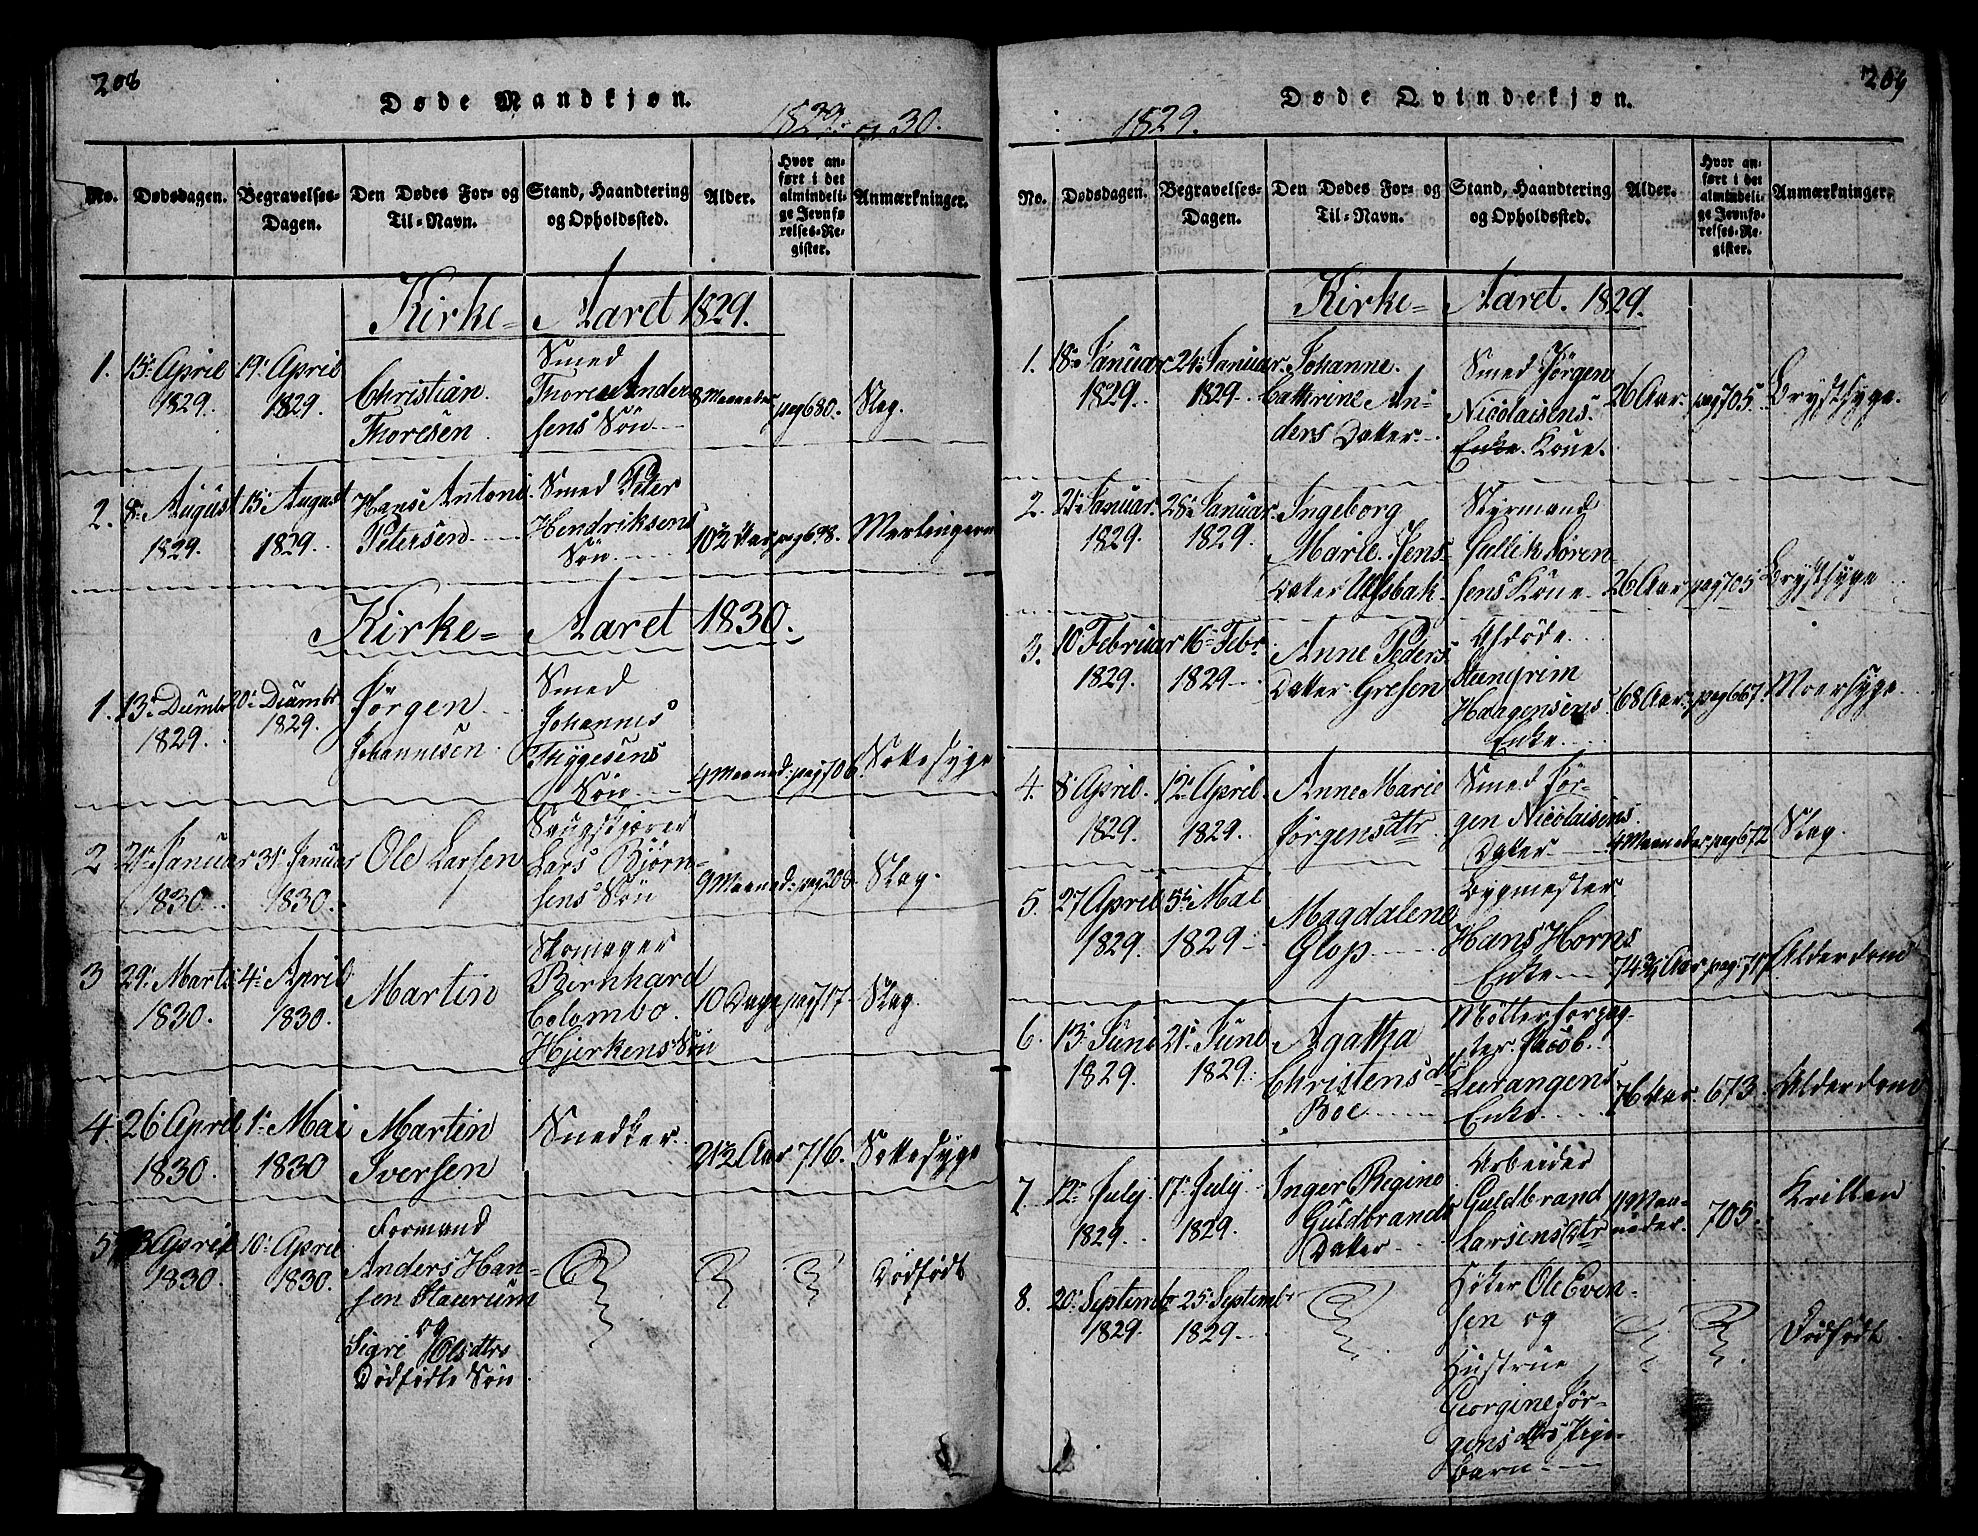 208
Døde Mandkjøn.
1829. og 30.
No.
Dødsdagen.
Begravelses-
Dagen.
Den Dødes For- og
Til-Navn.
Stand, Haandtering
og Opholdssted.
Alder.
Hvor an-
ført i det
almindeli-
ge Jevnfø-
relses-Re-
gister.
Anmærkninger.
Kirke- Aaret 1829.
1. 15de April
1829.
19de April
1829.
Christian
Thoresen
Smed
Thore Ander
sens Søn
8 Maaneder
pag 680.
Slag.
2. 8de August
1829.
15de August
1829.
Hans Antoni
Petersen
Smed Peter
Hendriksens
Søn
10½ Aar
pag 698.
Kirke- Aaret 1830.
1. 13de Decembr
1829.
20de Decembr
1829.
Jørgen
Johannesen
Smed
Johannes
Thygesens
Søn
4 Maaned:
pag 706.
Sottesyge
2 21de Januar
1830.
31te Januar
1830.
Ole Larsen
Saugskjærer
Lars Bjørn-
sens Søn
9 Maaned:
pag 208.
Slag.
3 29de Marts
1830.
4de April
1830.
Martin
Skomager
Bernhard
Colombo
Hjerkens Søn
10 Dage
pag 717.
Slag.
4. 26de April
1830.
1ste Mai
1830
Martin
Iversen
Snedker
21½ Aar
716.
Sottesyge
5 3de April
1830.
10de April
1830.
Formand
Anders Han-
sen Staurum
og
Sigri Olsdtrs
Dødfødte Søn
Dødfødt
209
Døde Qvindekjøn.
1829.
No.
Dødsdagen.
Begravelses-
Dagen.
Den Dødes For- og
Til-Navn.
Stand, Haandtering
og Opholdssted.
Alder.
Hvor an-
ført i det
almindeli-
ge Jevnfø-
relses-Re-
gister.
Anmærkninger.
Kirke- Aaret. 1829.
1. 18de Januar
1829.
24de Januar.
1829
Johanne
Cathrine An-
ders Datter
Smed Jørgen
Nicolaisens
Enke. Kone.
26 Aar.
pag 705.
Brystsyge.
2. 21de Januar.
1829.
28de Januar.
1829.
Ingeborg
Marie Jens
Datter Ulfsbak
Styrmand
Gullik Søren
sens Kone
26 Aar
pag 705
Brystsyge
3. 10 Februar
1829.
16de Febr.
1829
Anne Peders
Datter Gresen
Afdøde
Steengrim
Haagensens
Enke
68 Aar
pag 667.
Moersyge
4. 8de April.
1829.
12te April.
1829.
Anne Marie
Jørgensdtr
Smed Jør-
gen Nicolaisens
Datter
4 Maaneder
pag 672
Slag.
5. 27 April
1829.
5te Mai
1829
Magdalene
Glop
Bygmester
Hans Horns
Enke
74¾ Aar
pag: 717
Alderdom
6. 13de Juni
1829.
21de Juni
1829.
Agatha
Christensdtr
Boe
Møllerforpag-
ter Jacob
Leerangens
Enke
76 Aar.
673.
Alderdom
7. 12te July
1829.
17de July
1829.
Inger Regine
Guldbrands
Datter
Arbeider
Guldbrand
Larsens Dtr
11 Maa-
neder.
705.
Krillen
8. 20de Septembr
1829.
25de Septembr
1829.
Høker Ole Even-
sen og
Hustrue
Georgine Jør-
gensdtrs Pige-
barn
Dødfødt.